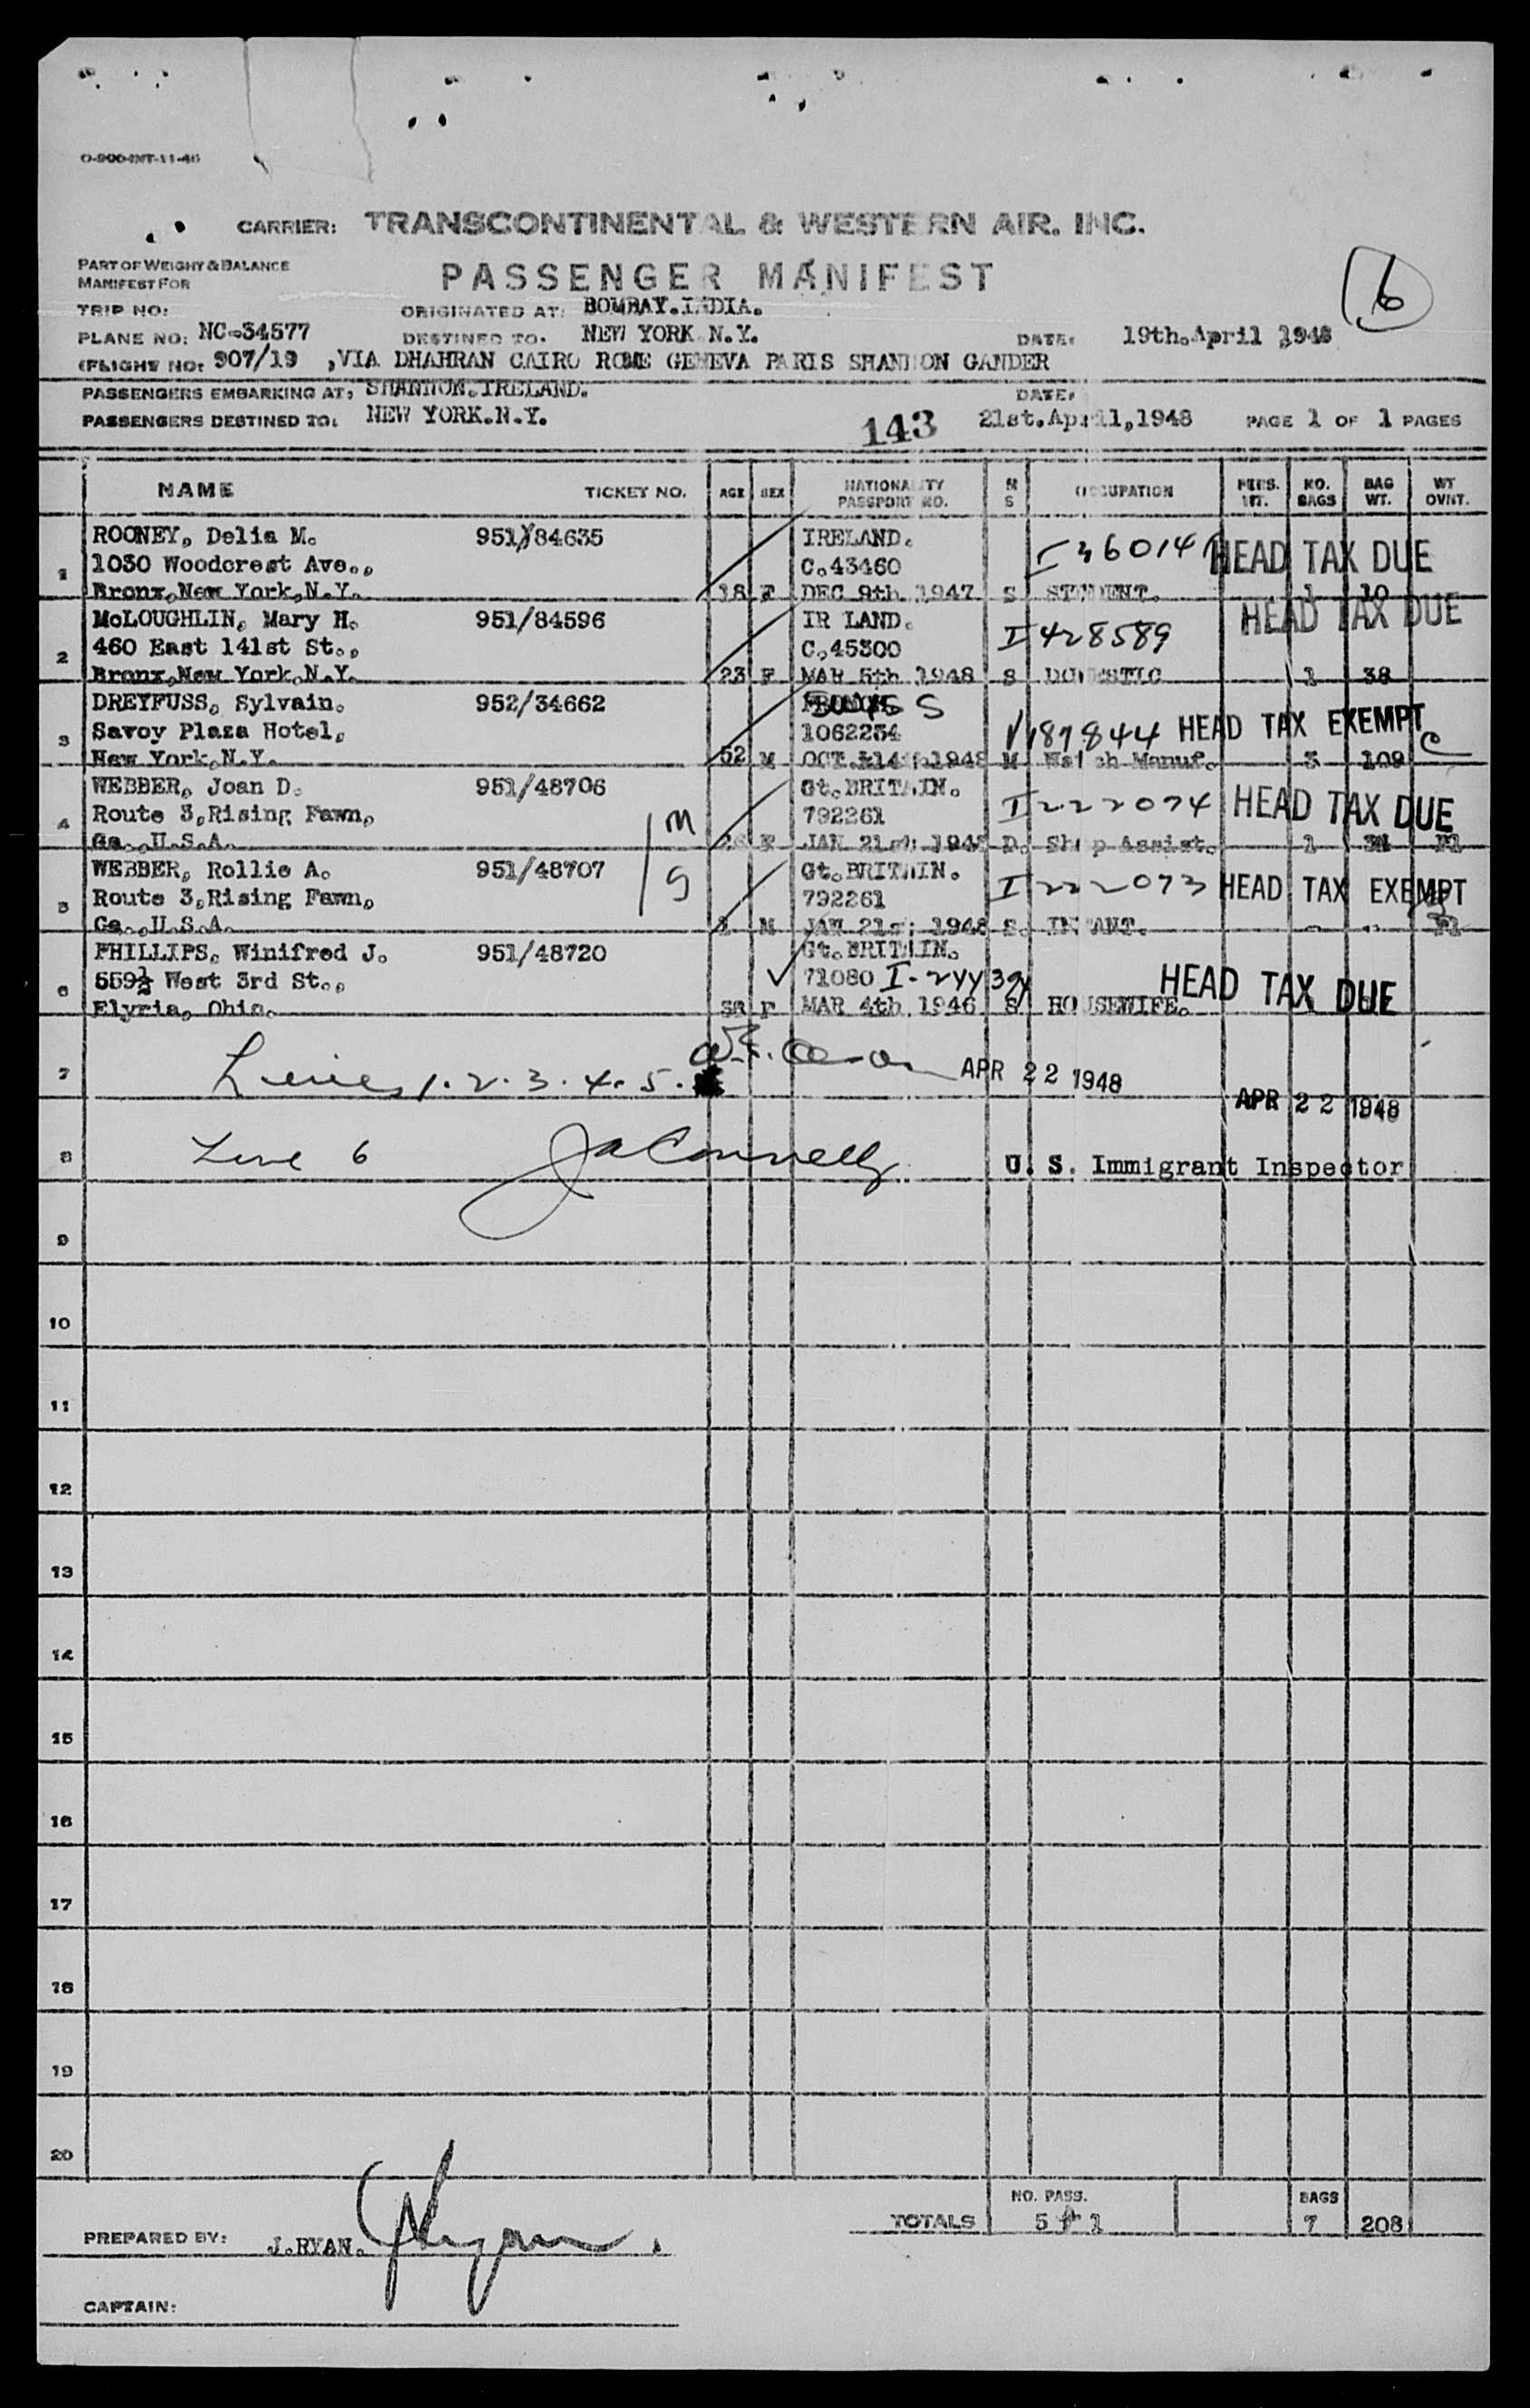 O-900-INT-11-46
CARRIER: TRANSCONTINENTAL & WESTERN AIR. INC.
PART OF WEIGHT & BALANCE
MANIFEST FOR
PASSENGER MANIFEST
6
TRIP NO: ORIGINATED AT: BOMBAY.INDIA.
PLANE NO: NC-34577 DESTINED TO. NEW YORK N.Y. DATE: 19th.April 1948
(FLIGHT NO: 907/19 ,VIA DHAHRAN CAIRO ROME GENEVA PARIS SHANNON GANDER
PASSENGERS EMBARKING AT: SHANNON.IRELAND. DATE:
PASSENGERS DESTINED TO: NEW YORK.N.Y. 143 21st.April,1948 PAGE 1 OF 1 PAGES
NAME TICKET NO. AGE SEX NATIONALITY PASSPORT NO. M S OCCUPATION PERS. WT. NO. BAGS BAG WT. WT OVNT.
ROONEY, Delia M. 951/84635 IRELAND.
1 1030 Woodcrest Ave., C.43460 HEAD TAX DUE
Bronx,New York,N.Y. 18 F DEC 9th 1947 S STUDENT. 1 10
McLOUGHLIN, Mary H. 951/84596 IR LAND. HEAD TAX DUE
2 460 East 141st St., C.45300 I 428589
Bronx,New York,N.Y. 23 F MAR 5th 1948 S DOMESTIC 1 38
DREYFUSS, Sylvain. 952/34662
3 Savoy Plaza Hotel, 1062234 HEAD TAX EXEMPT
New York,N.Y. 52 M 1948 M Watch Manuf. 3 109
WEBBER, Joan D. 951/48706 Gt.BRITAIN.
4 Route 3,Rising Fawn, m 792261 I 222074 HEAD TAX DUE
Ga.,U.S.A. F JAN 21st 1948 D. Shop Assist. 1
WEBBER, Rollie A. 951/48707 Gt.BRITAIN.
5 Route 3,Rising Fawn, 792261 I 222073 HEAD TAX EXEMPT
Ga.,U.S.A. M JAN 21st 1948 S. INFANT.
PHILLIPS. Winifred J. 951/48720 Gt.BRITAIN.
6 559½ West 3rd St., 71080 HEAD TAX DUE
Elyria, Ohio. F MAR 4th 1946 S HOUSEWIFE.
7 Lines 1.2.3.4.5. APR 22 1948
APR 22 1948
8 Line 6 JA Connelly U. S. Immigrant Inspector
9
10
11
12
13
14
15
16
17
18
19
20
NO. PASS. BAGS
TOTALS 5 + 1 7 208
PREPARED BY: J.RYAN.
CAPTAIN: